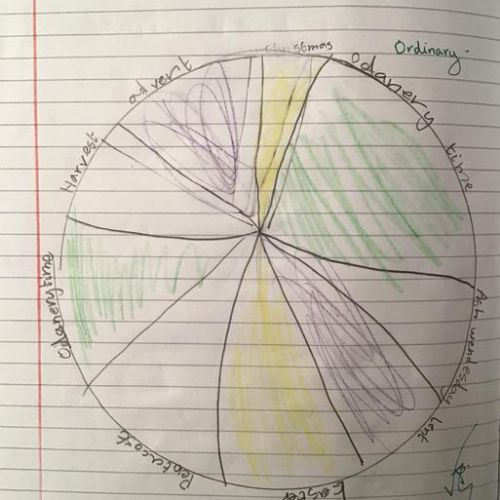 Christmas
Ordinary.
Odanery
time
Ash wendesday
Lent
Easter
Pentucost
Odanerytime
Harvest
advent